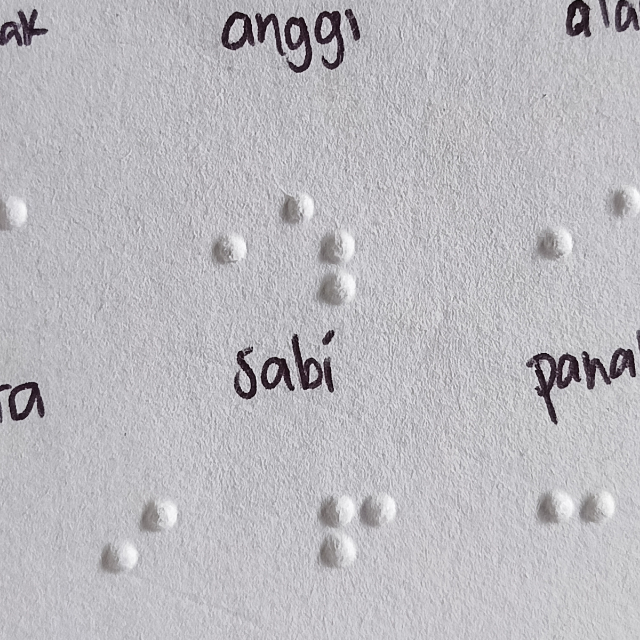 ak anggi ala
ra sabi pana